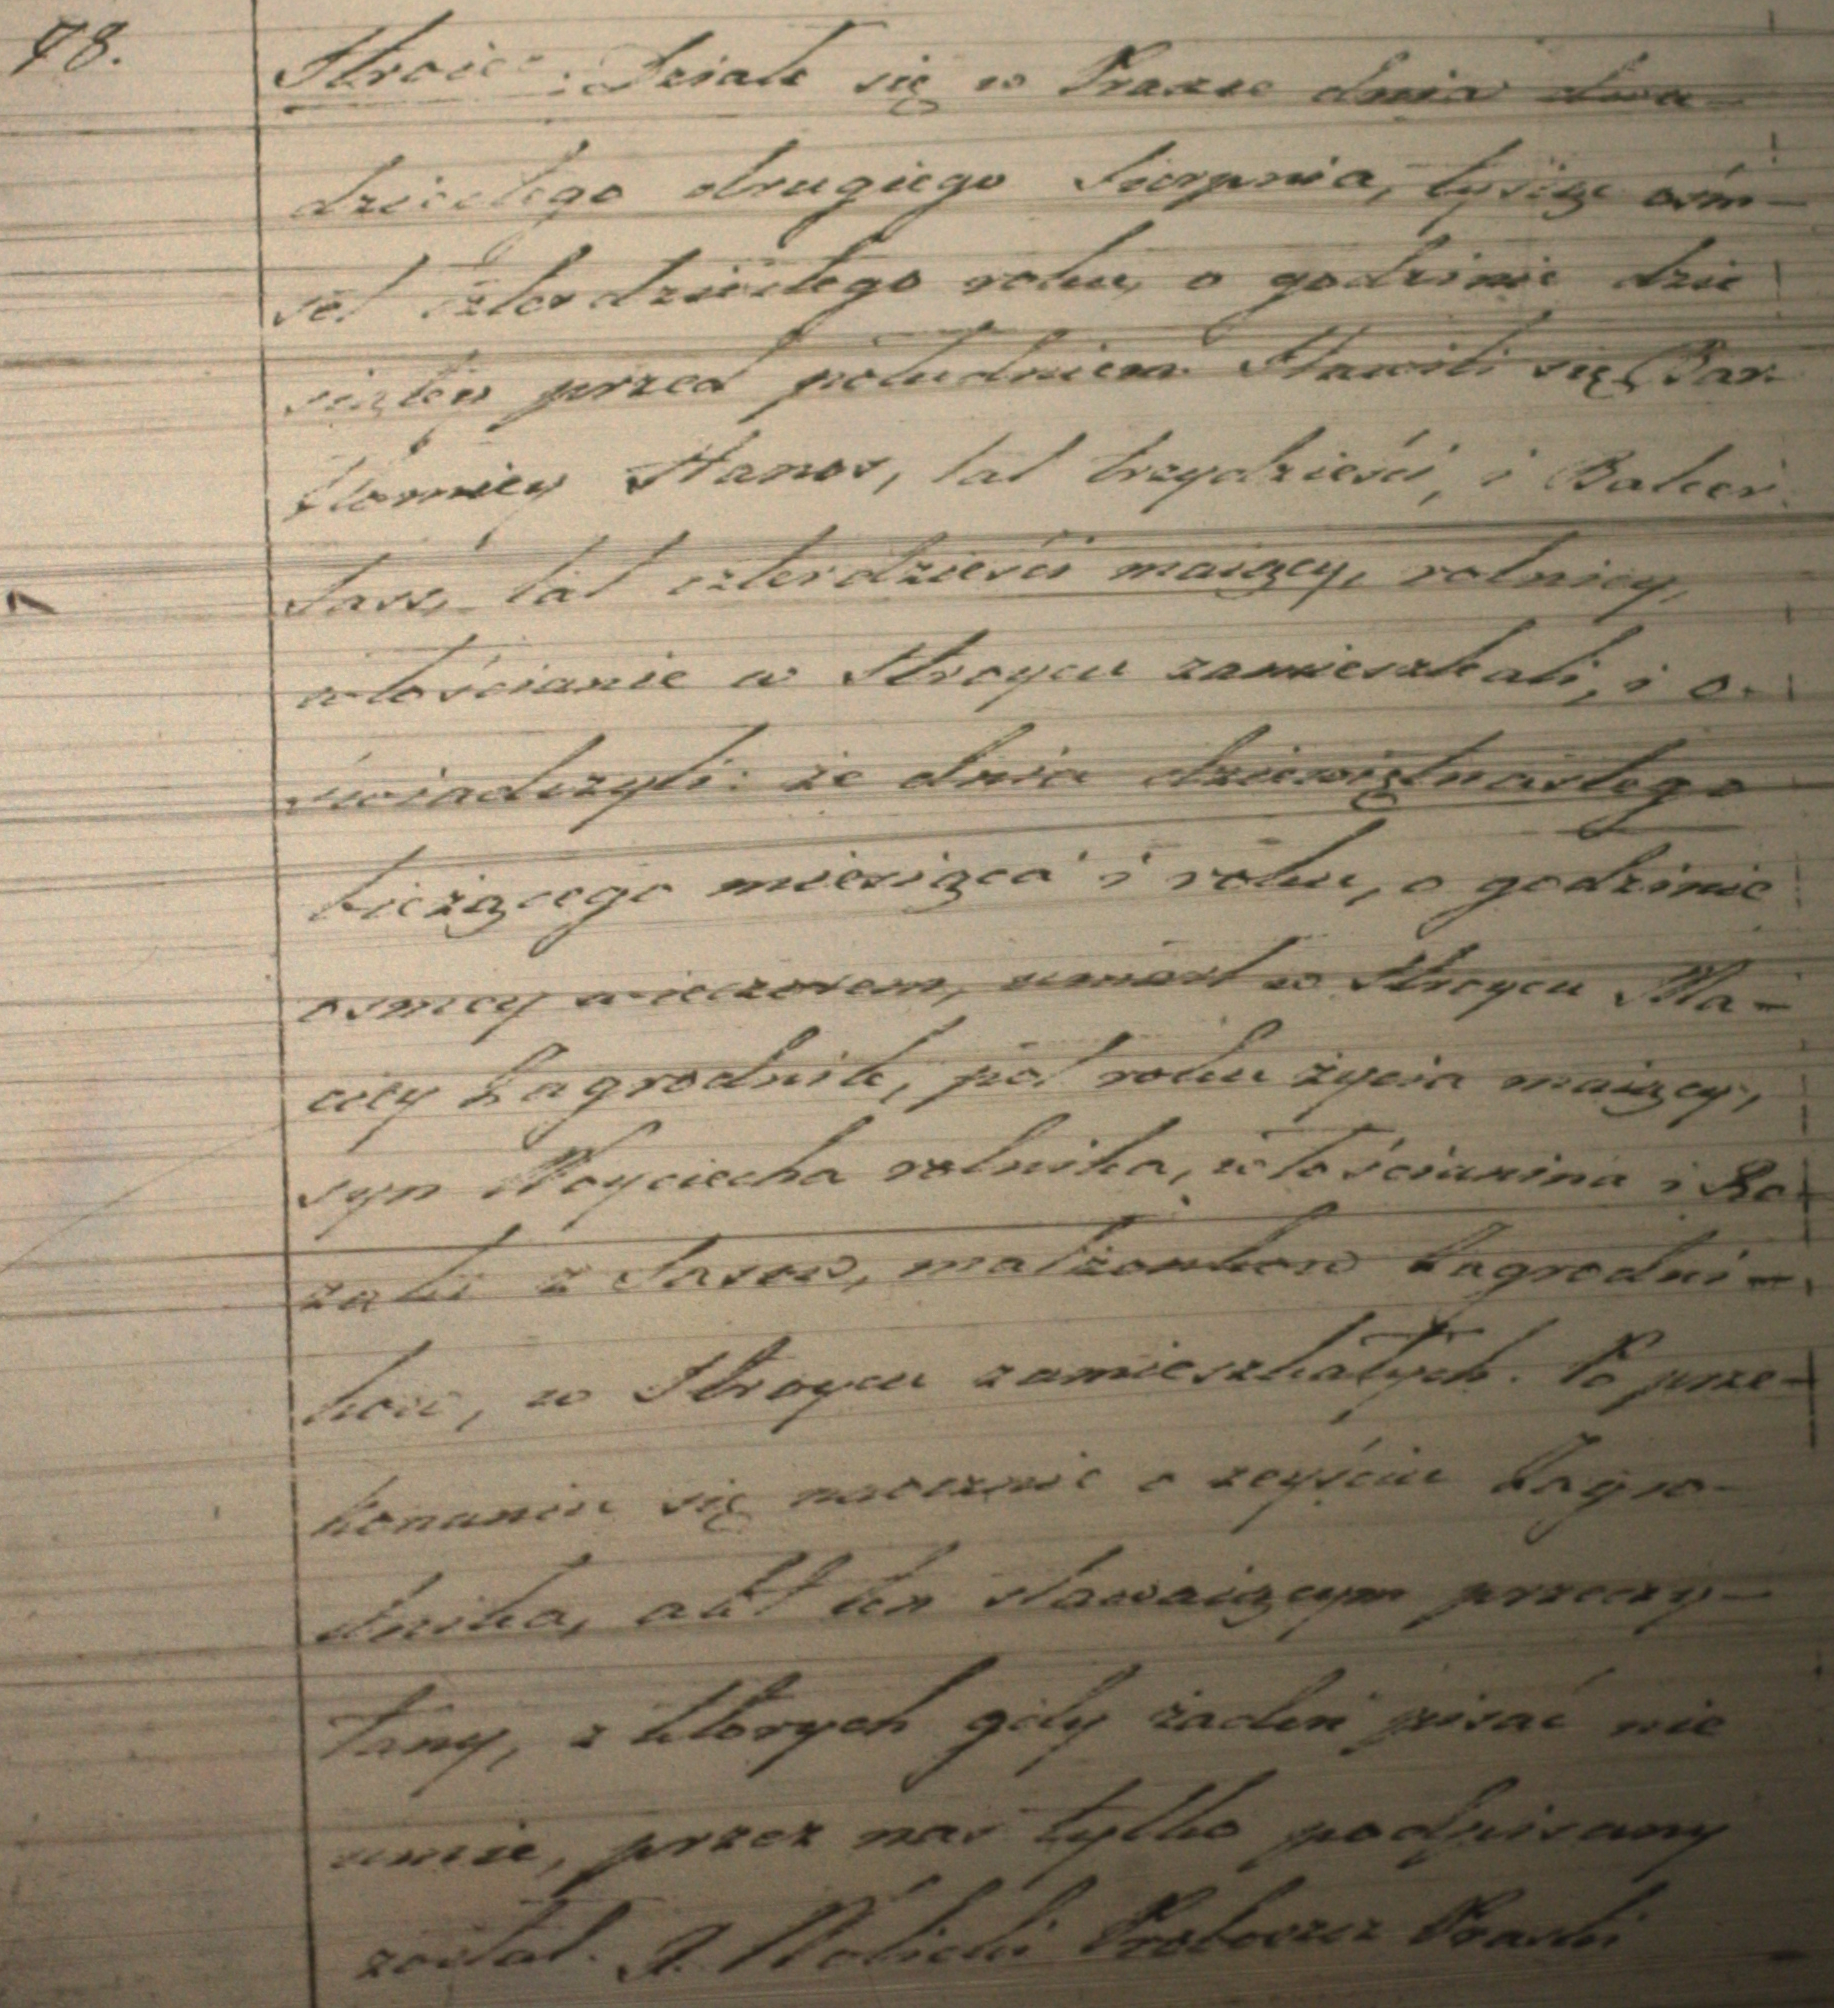 78.
Stroiec. Działo się w Prasce dnia dwu-
dziestego drugiego Sierpnia, tysiąc ośm-
set czterdziestego roku, o godzinie dzie
siątey przed południem. Stawili się Bar-
tłomiey Stanos, lat trzydzieści, i Balcer
Sass, lat czterdzieści maiący, rolnicy,
włościanie w Stroycu zamieszkali, i o-
świadczyli: że dnia dziewiętnastego
bieżącego miesiąca i roku, o godzinie
osmey wieczorem, umarł w Stroycu Ma-
ciey Zagrodnik, pół roku życia maiący,
syn Woyciecha rolnika, włościanina i Ro-
zalii z Sasow, małżonkow Zagrodni-
kow, w Stroycu zamieszkałych. Po prze-
konaniu się naocznie o zeyściu Zagro-
dnika, akt ten stawaiącym przeczy-
tany, z ktorych gdy żaden pisać nie
umie, przez nas tylko podpisany
został. Proboszcz Praszki